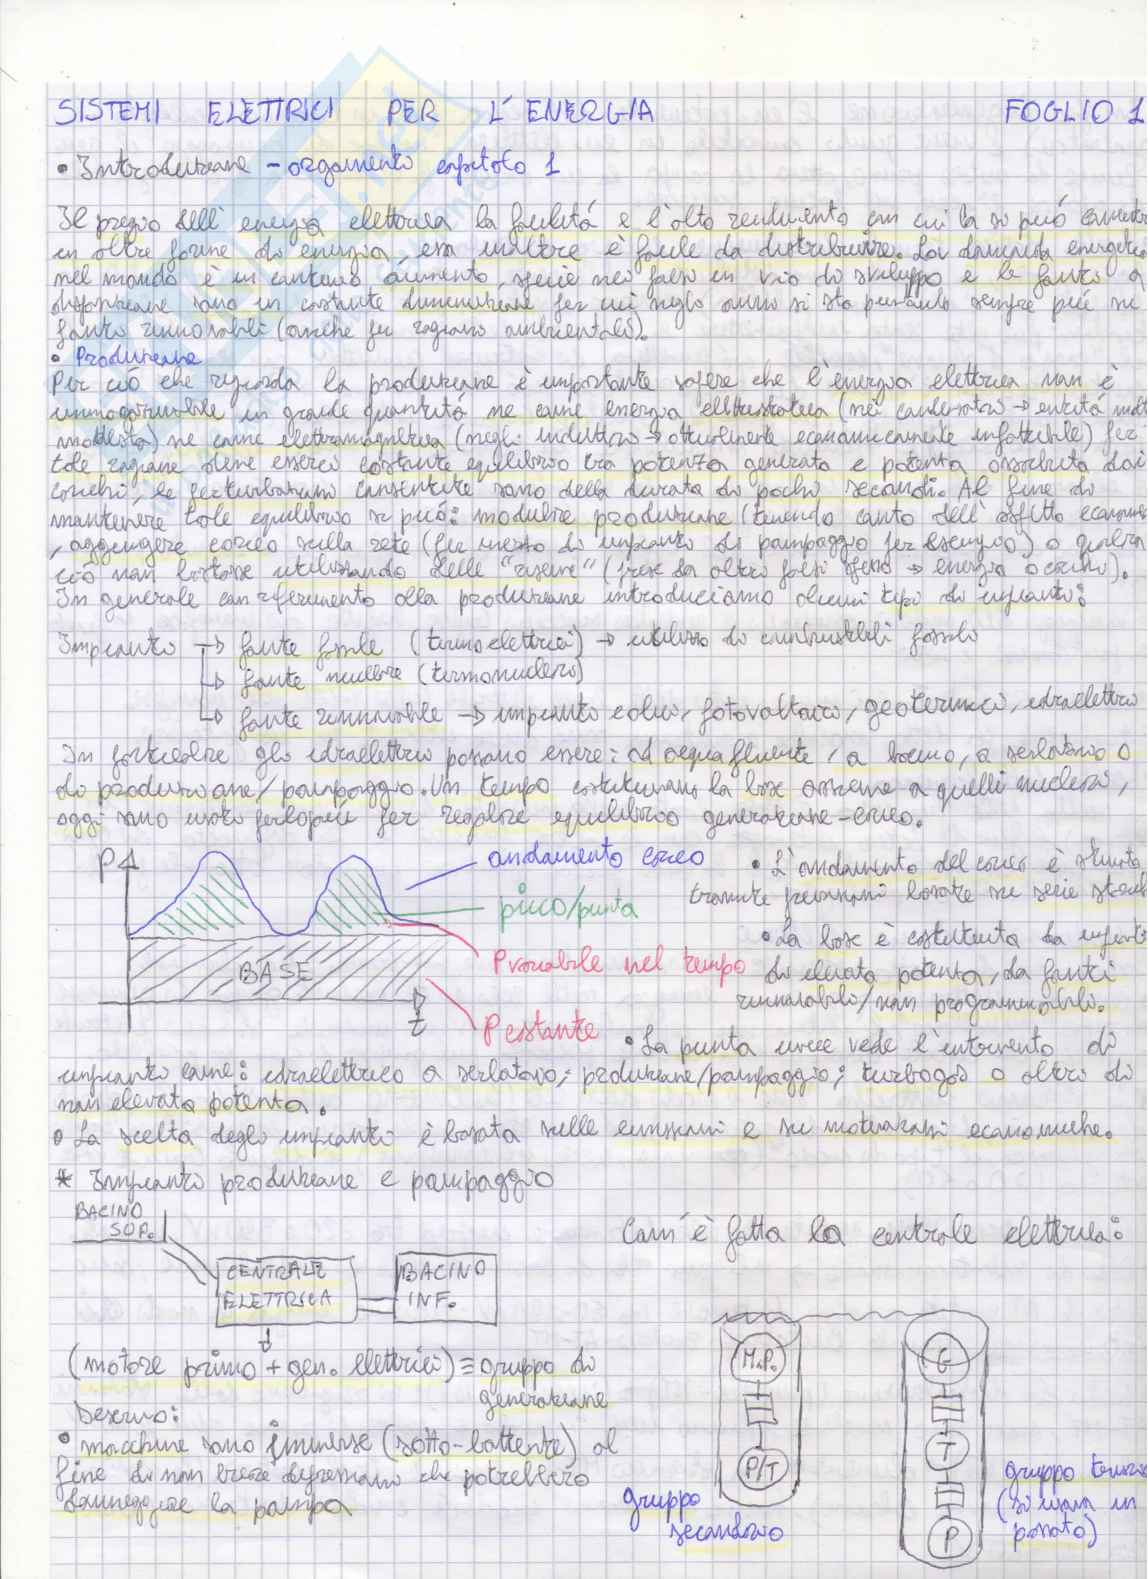 SISTEMI ELETTRICI PER L'ENERGIA FOGLIO 1
• Introduzione - argomento capitolo 1
Il pregio dell'energia elettrica la facilità e l'alto rendimento con cui la si può
in altre forme di energia, essa inoltre è facile da distribuire. La domanda
nel mondo è in continuo aumento, specie nei paesi in via di sviluppo e le fonti a
disposizione sono in costante diminuzione per cui negli anni si sta puntando sempre più
fonti rinnovabili (anche per ragioni ambientali).
• Produzione
Per ciò che riguarda la produzione è importante sapere che l'energia elettrica non è
immagazzinabile in grande quantità né come energia elettrostatica (nei condensatori →
modesta) né come elettromagnetica (negli induttori → attualmente economicamente infattibile) per
tale ragione deve esserci costante equilibrio tra potenza generata e potenza assorbita dai
carichi, le perturbazioni consentite sono della durata di pochi secondi. Al fine di
mantenere tale equilibrio si può: modulare produzione (tenendo conto dell'aspetto
, aggiungere carico sulla rete (per mezzo di impianti di pompaggio per esempio) o qualora
ciò non bastasse utilizzando delle "riserve" ( da altri paesi → energia o carico).
In generale con riferimento alla produzione introduciamo alcuni tipi di impianti:
Impianto → fonte fossile (termoelettrici) → utilizzo di combustibili fossili
↳ fonte nucleare (termonucleari)
↳ fonte rinnovabile → impianto eolico, fotovoltaico, geotermico, idroelettrico
In particolare gli idroelettrici possono essere: ad acqua fluente, a bacino, a serbatoio o
di produzione/pompaggio. Un tempo costituivano la base assieme a quelli nucleari,
oggi sono usati perlopiù per regolare equilibrio generazione-carico.
P
andamento carico
picco/punta
BASE
P variabile nel tempo
P costante
t
• L'andamento del carico è stimato
tramite previsioni basate su serie
• La base è costituita da
di elevata potenza, da fonti
rinnovabili/non programmabili.
• La punta invece vede l'intervento di
impianti come: idroelettrico a serbatoio; produzione/pompaggio; turbogas o altri di
non elevata potenza.
• La scelta degli impianti è basata sulle emissioni e su motivazioni economiche.
* Impianto produzione e pompaggio
BACINO
SUP.
CENTRALE
ELETTRICA
BACINO
INF.
Com'è fatta la centrale elettrica:
(motore primo + gen. elettrici) ≡ gruppo di
generazione
Deservo:
• macchine sono immerse (sotto-battente) al
fine di non creare depressioni che potrebbero
danneggiare la pompa
M.P.
P/T
gruppo
secondario
G
T
P
gruppo
(si usava in
passato)